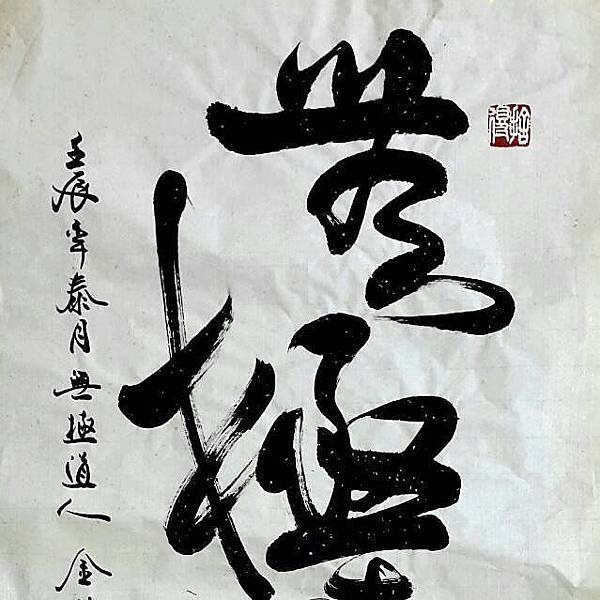 捨得
無極
壬辰年泰月無極道人 金